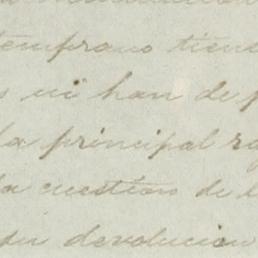 temprano tiene
ni han de
la principal
la cuestión de
su devolucion